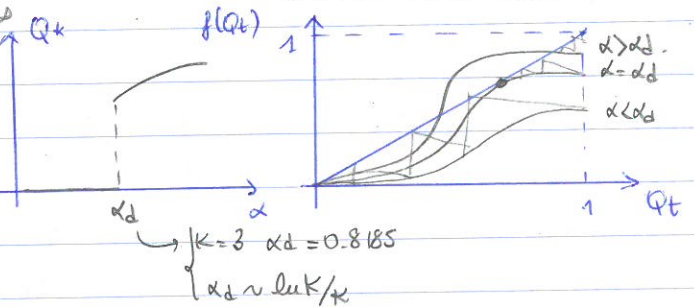 Q*
f(Qt)
1
α>αd.
α=αd
α<αd
αd
α
1
Qt
K=3 αd=0.8185
αd ~ ln K/K